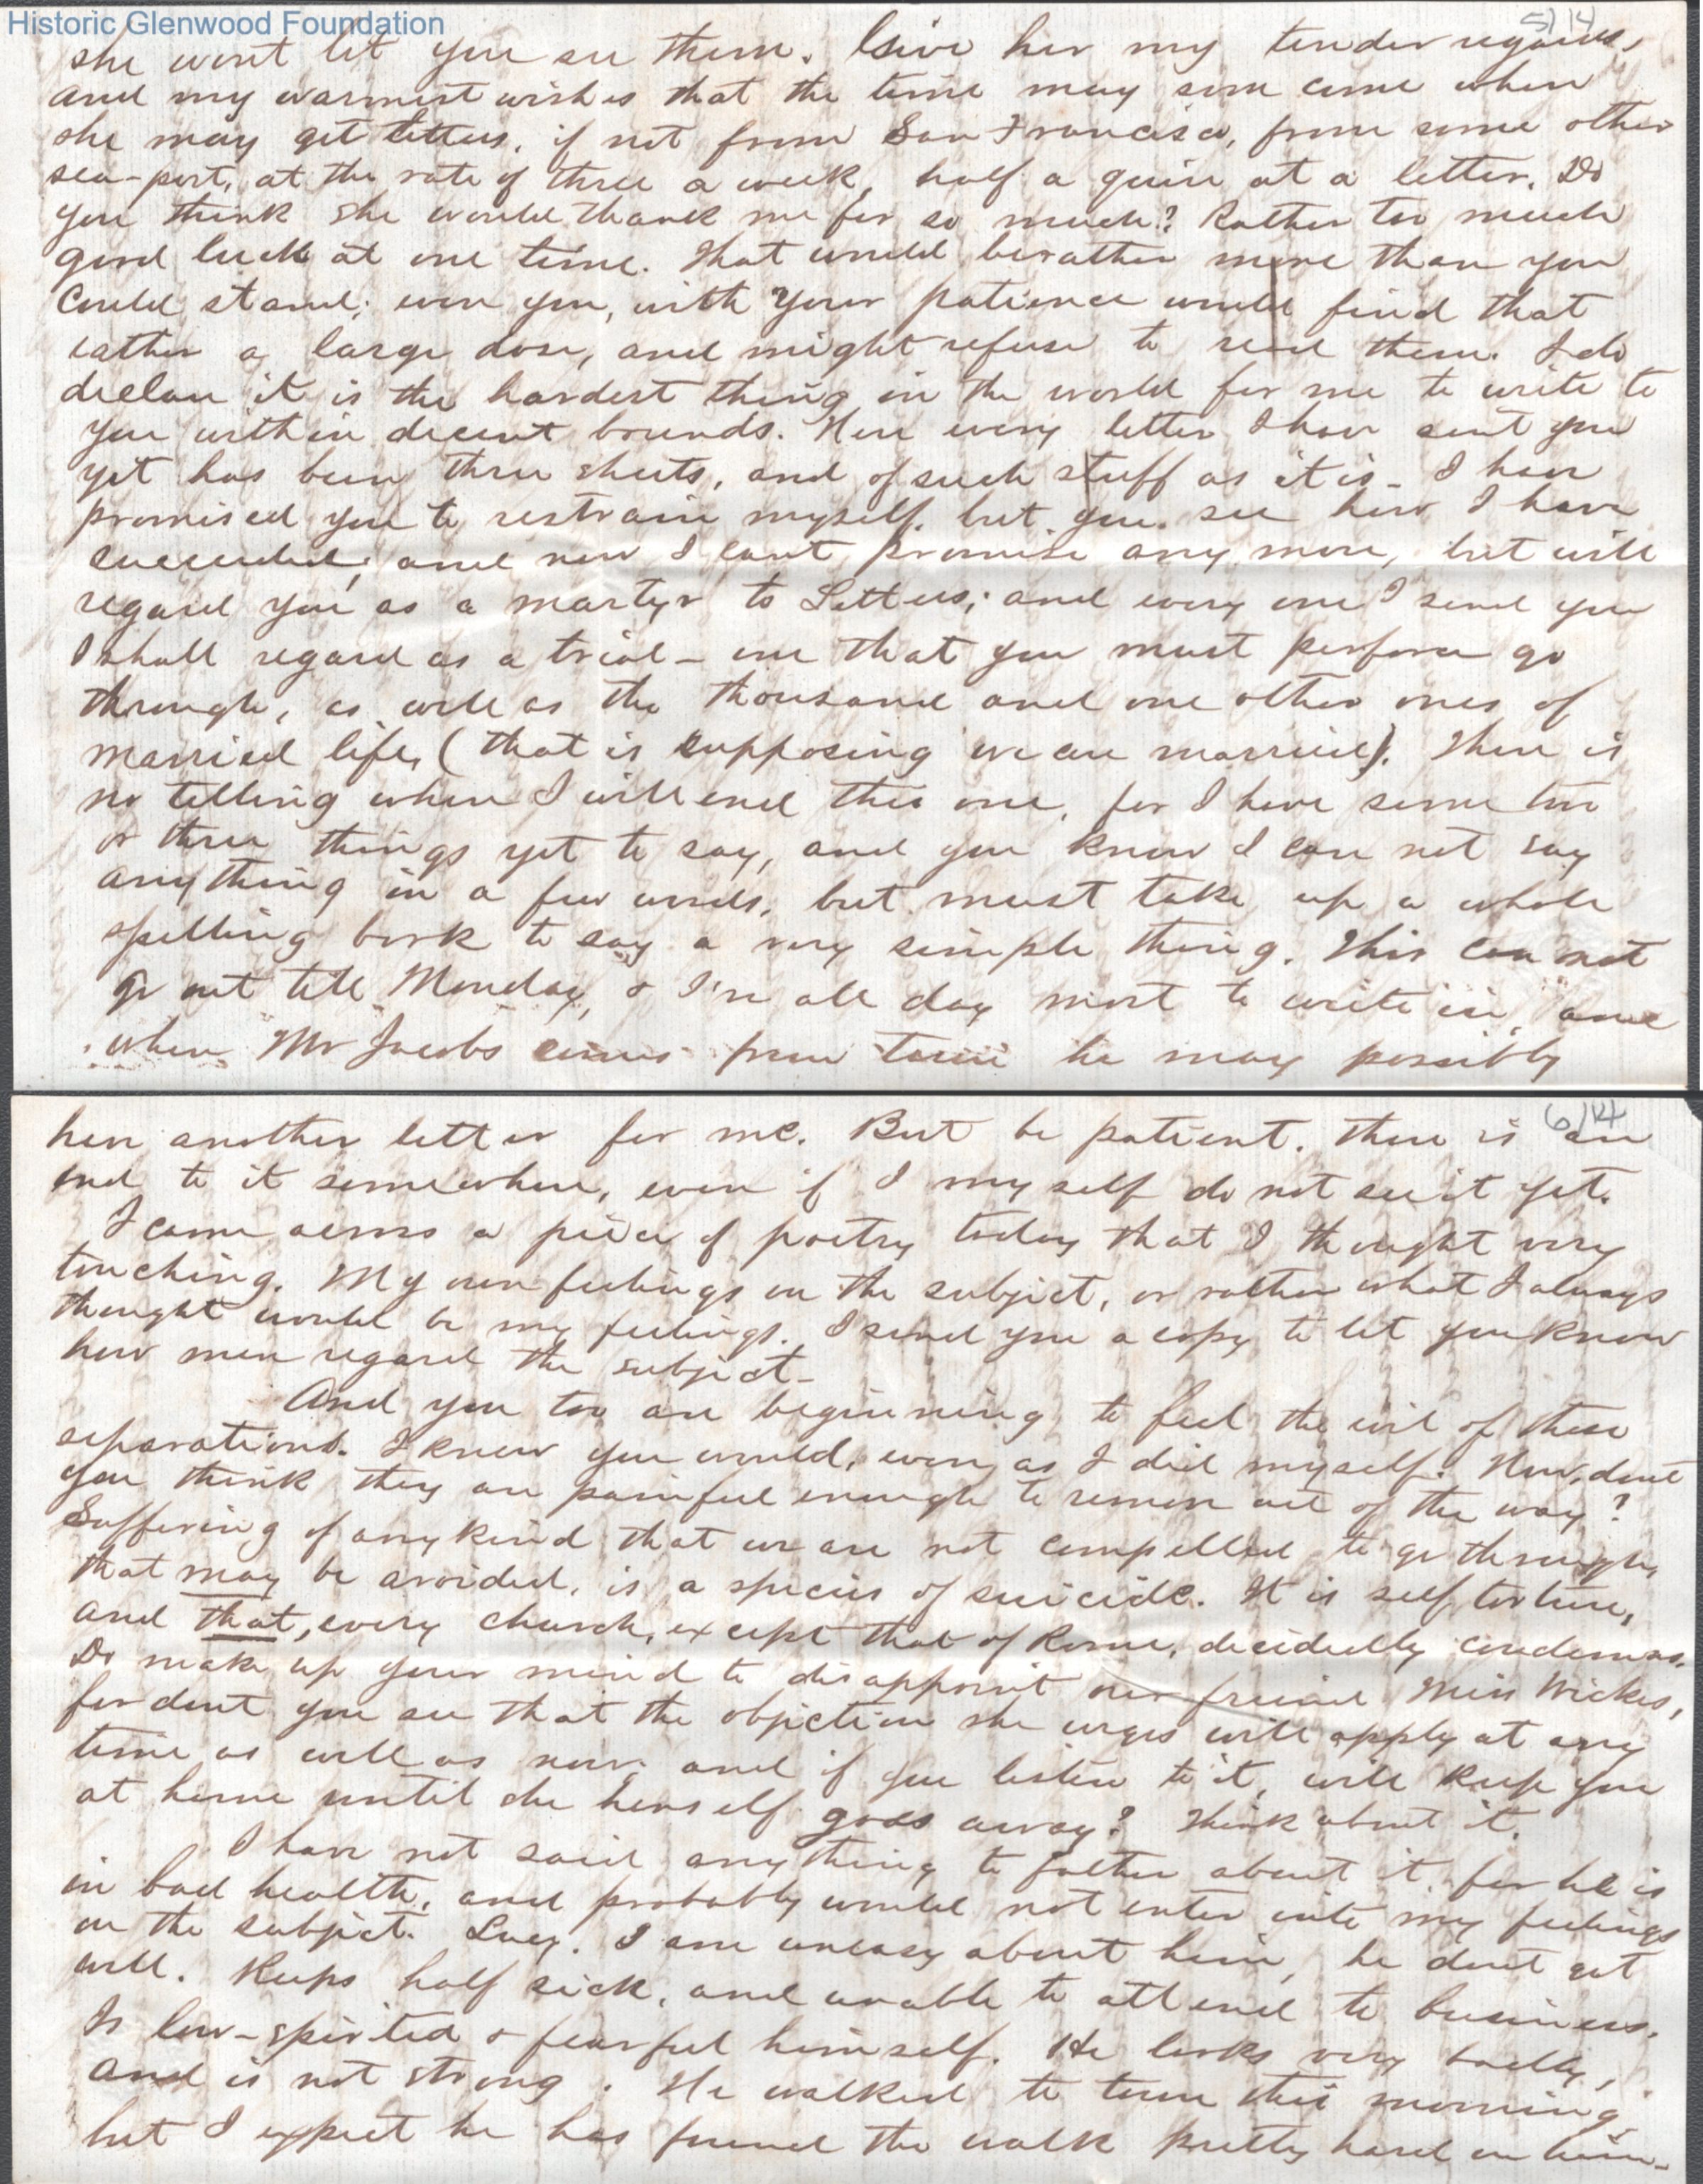 Historic Glenwood Foundation
5/14
she wont let you see them. Give her my tender regards,
and my warmest wishes that the time may soon come when
she may get letters, if not from San Francisco, from some other
sea-port, at the rate of three a week, half a quire at a letter. Do
you think she would thank me for so much? Rather too much
good luck at one time. That would be rather more than you
could stand; even you, with your patience would find that
rather a large dose, and might refuse to read them. I do
declare it is the hardest thing in the world for me to write to
you within decent bounds. Here every letter I have sent you
yet has been three sheets, and of such stuff as it is - I have
promised you to restrain myself, but you see how I have
succeeded; and now I cant promise any more, but will
regard you as a martyr to Letters; and every one I send you
I shall regard as a trial - one that you must perforce go
through, as well as the thousand and one other ones of
married life, (that is supposing we are married). There is
no telling when I will end this one, for I have some two
or three things yet to say, and you know I can not say
anything in a few words, but must take up a whole
spelling book to say a very simple thing. This can not
go out till Monday, & I've all day most to write in, and
when Mr Jacobs comes from town he may possibly
6/14
have another letter for me. But be patient. There is an
end to it somewhere, even if I myself do not see it yet.
I came across a piece of poetry today that I thought very
touching. My own feelings on the subject, or rather what I always
thought would be my feelings. I send you a copy to let you know
how men regard the subject -
And you too are beginning to feel the evil of these
separations. I knew you would, even as I did myself. Now, dont
you think they are painful enough to remove out of the way?
Suffering of any kind that we are not compelled to go through,
that may be avoided, is a species of suicide. It is self torture,
and that, every church, except that of Rome, decidedly condemns.
Do make up your mind to disappoint our friend Miss Wickes,
for dont you see that the objection she urges will apply at any
time as well as now, and if you listen to it, will keep you
at home until she herself goes away? Think about it.
I have not said anything to father about it, for he is
in bad health, and probably would not enter into my feelings
on the subject. Lucy. I am uneasy about him, he dont get
well. Keeps half sick, and unable to attend to business.
Is low-spirited & fearful himself. He looks very badly,
and is not strong. He walked to town this morning,
but I expect he has found the walk pretty hard on him -